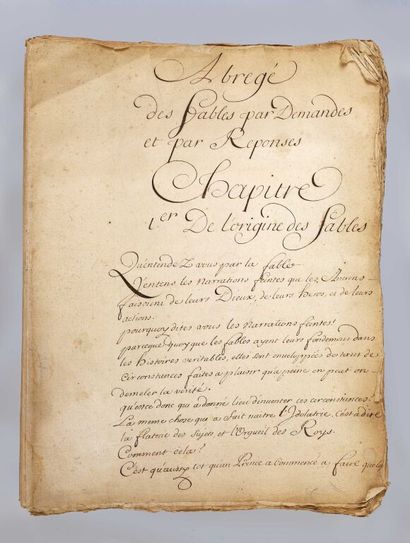 Abregé
des Fables par Demandes
et par Reponses
Chapitre
1.er De l'origine des Fables
Qu'entendez vous par la fable?
J'entens les Narrations feintes que les Anciens
faisoient de leurs Dieux, de leurs Heros, et de leurs
actions.
pourquoy dites vous les Narrations feintes
parceque quoyque les fables ayent leurs fondemens dans
les histoires veritables, elles sont enveloppées de tant de
circonstances faites a plaisir qu'a peine en peut on
demeler la verité.
qu'est ce donc qui a donné lieu d'inventer ces circonstances.
La meme chose qui a fait naitre l'Idolatrie, c'est a dire
la flaterie des Sujets et l'Orgueil des Roys.
Comment cela?
C'est qu'aussy tot qu'un Prince a commencé a faire